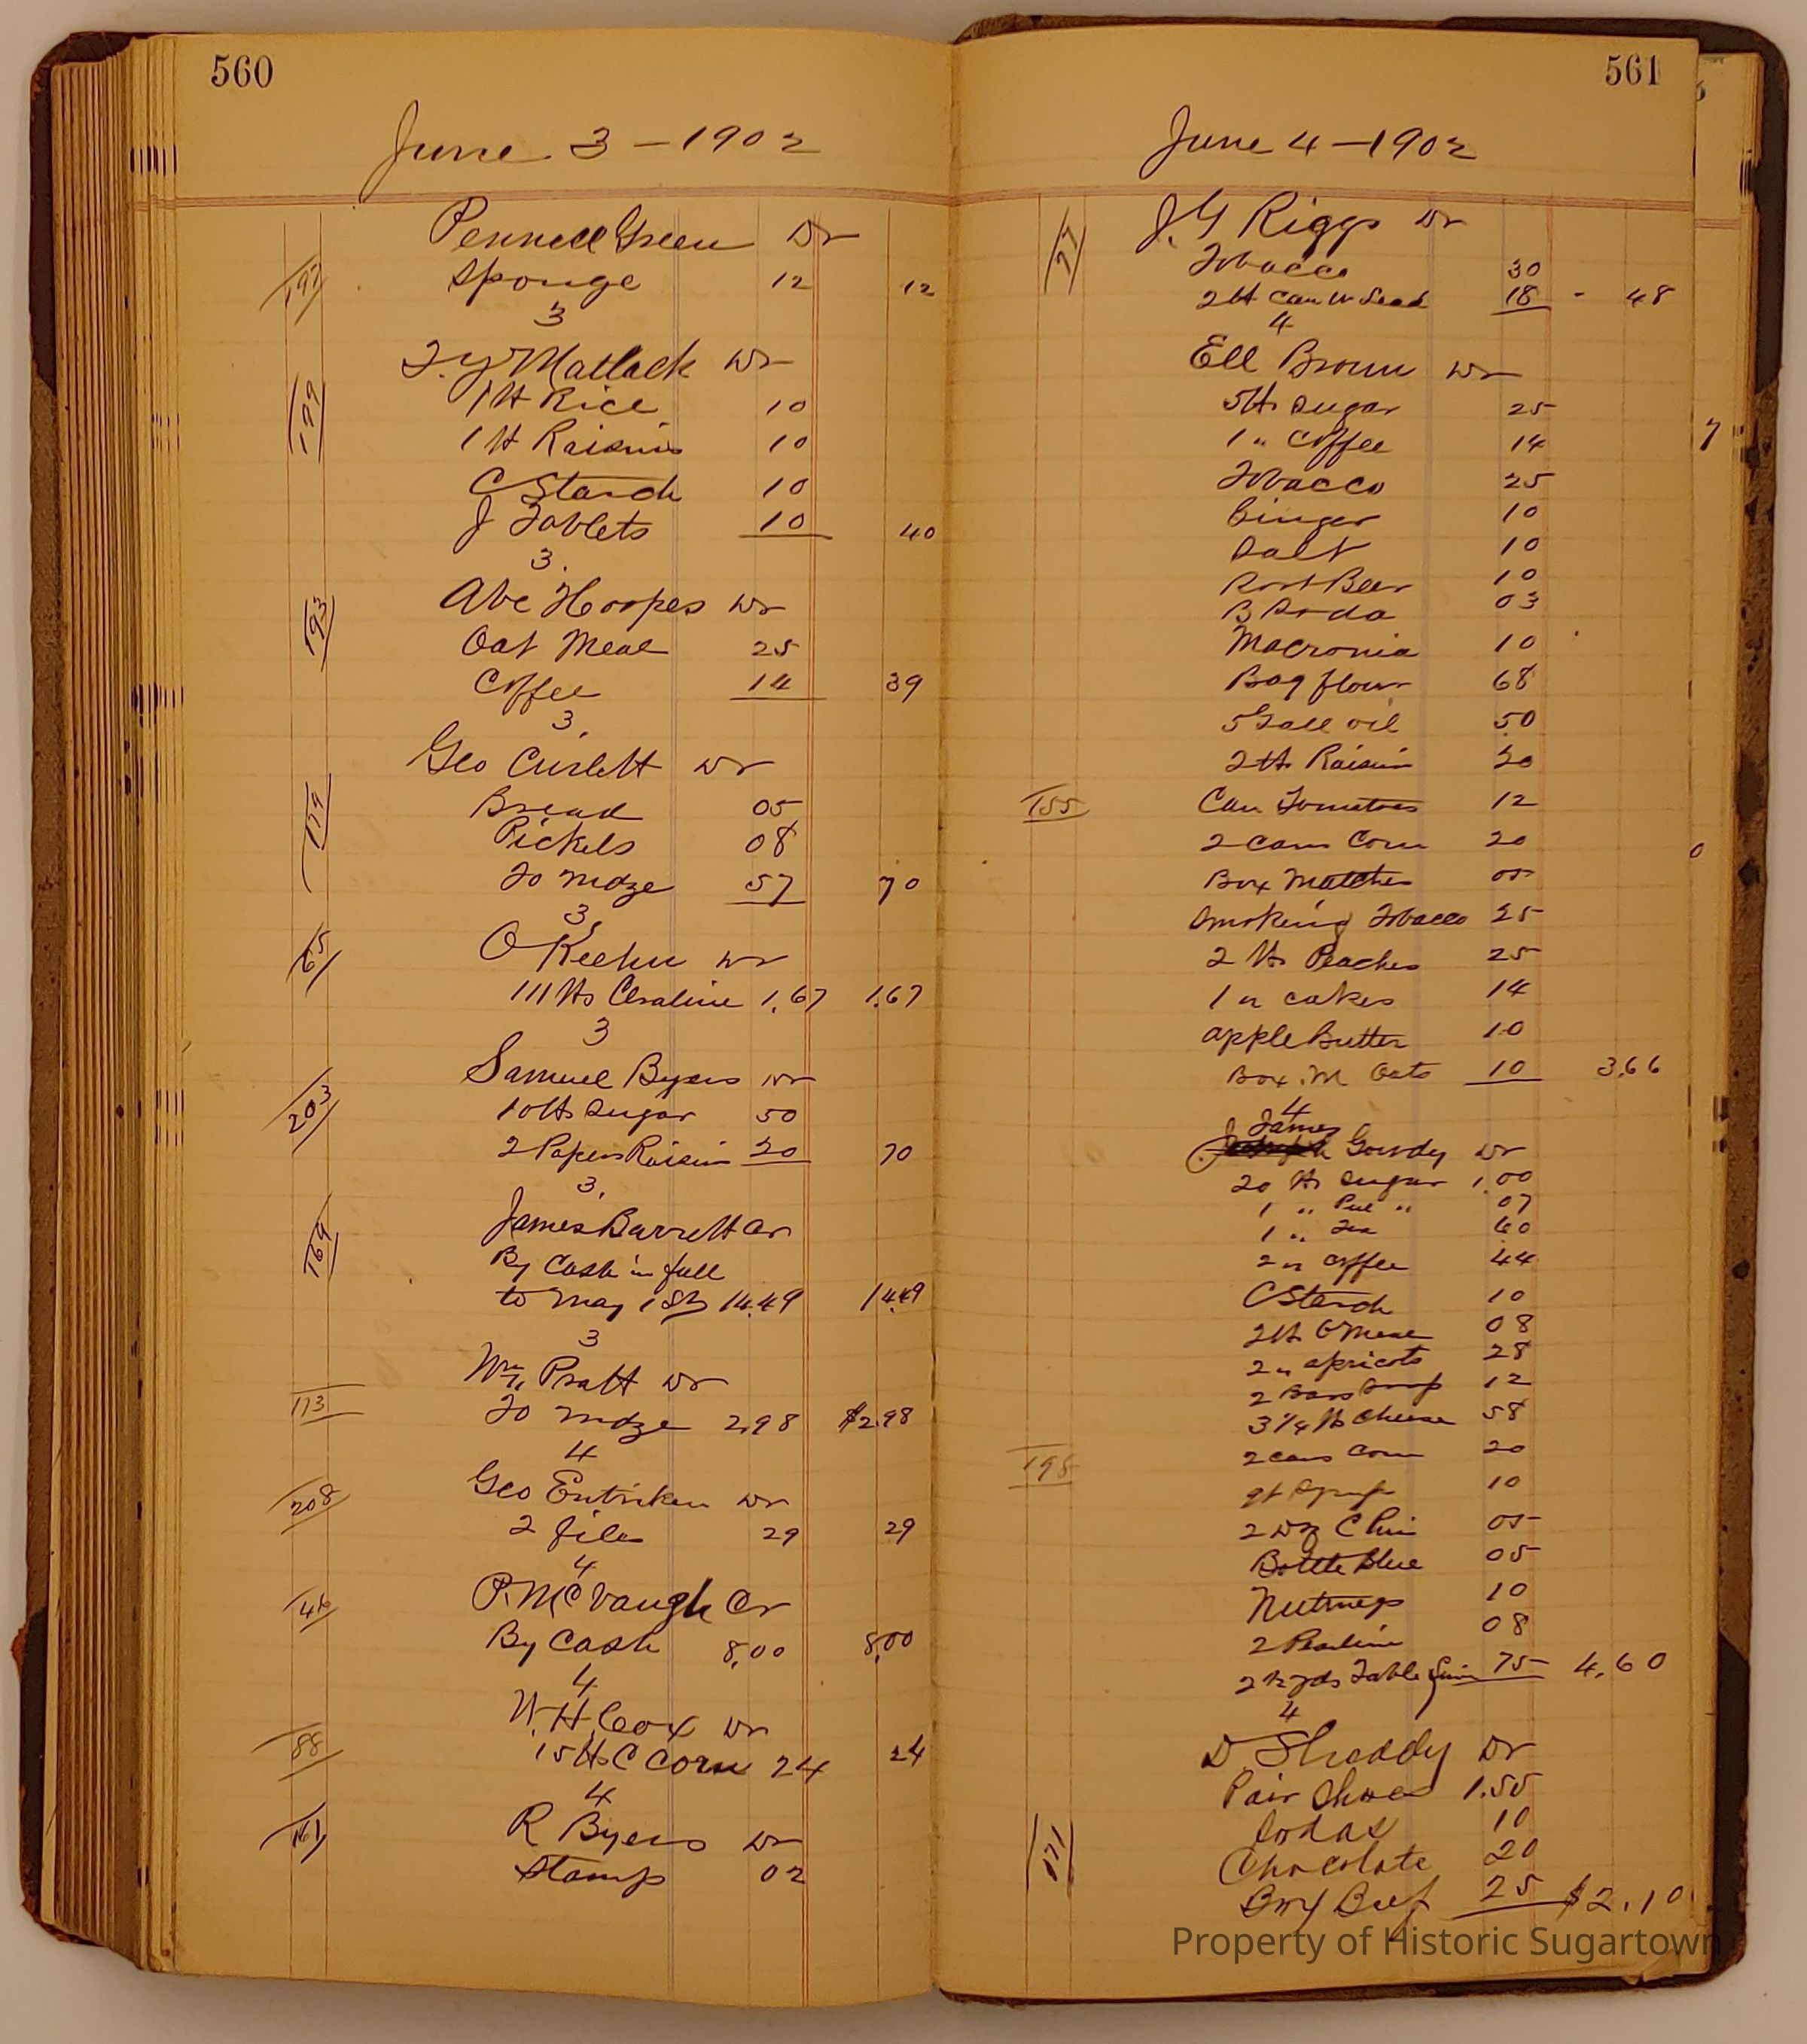 560
June 3 - 1902
Pennell Green Dr
197
Sponge 12 12
3
Matlack Dr
199
1 lb Rice 10
1 lb Raisins 10
C Starch 10
J Tablets 10 40
3.
Abe Hoopes Dr
193
Oat Meal 25
Coffee 14 39
3.
Geo Curlett Dr
179
Bread 05
Pickels 08
To mdze 57 70
3
65
O Keehn Dr
111 lbs Ceraline 1.67 1.67
3
Samuel Byers Dr
203
10 lbs Sugar 50
2 Papers Raisin 20 70
3.
James Barrett Cr
169
By Cash in full
to May 1st 14.49 14.49
3
Wm Pratt Dr
113
To mdze 2.98 $2.98
4
Geo Entriken Dr
208
2 files 29 29
4
P. McVaugh Cr
By Cash 8.00 8.00
4
W. H. Cox Dr
88
15 lbs C Corn 24 24
4
R Byers Dr
161
Stamp 02
561
June 4 - 1902
J. G Riggs Dr
77
Tobacco 30
2 lb Can W Lead 18 - 48
4
Ell Brown Dr
5 lbs Sugar 25
1 " Coffee 14
Tobacco 25
Ginger 10
Salt 10
Root Beer 10
B Soda 03
Macronia 10
Bag flour 68
5 Gall oil 50
2 lb Raisin 20
155
Can Tometoes 12
2 cans Corn 20
Box Matches 05
Smoking Tobacco 25
2 lbs Peaches 25
1 " cakes 14
apple Butter 10
Box M Oats 10 3.66
4
James
Gowdy Dr
20 lbs Sugar 1.00
1 " Pul " 07
1 " Tea 60
2 " Coffee 44
C Starch 10
2 lb O Meal 08
2 " apricots 28
2 Bars Soap 12
3 1/4 lb Cheese 58
2 cans Corn 20
198
qt Syrup 10
2 Dz C Pin 05
Bottle Blue 05
Nutmegs 10
2 Pearline 08
2 1/2 yds Table 75 4.60
4
D. Sheddy Dr
Pair Shoes 1.55
171
Sodas 10
Chocolate 20
Beef 25 $2.10
Property of Historic Sugartown